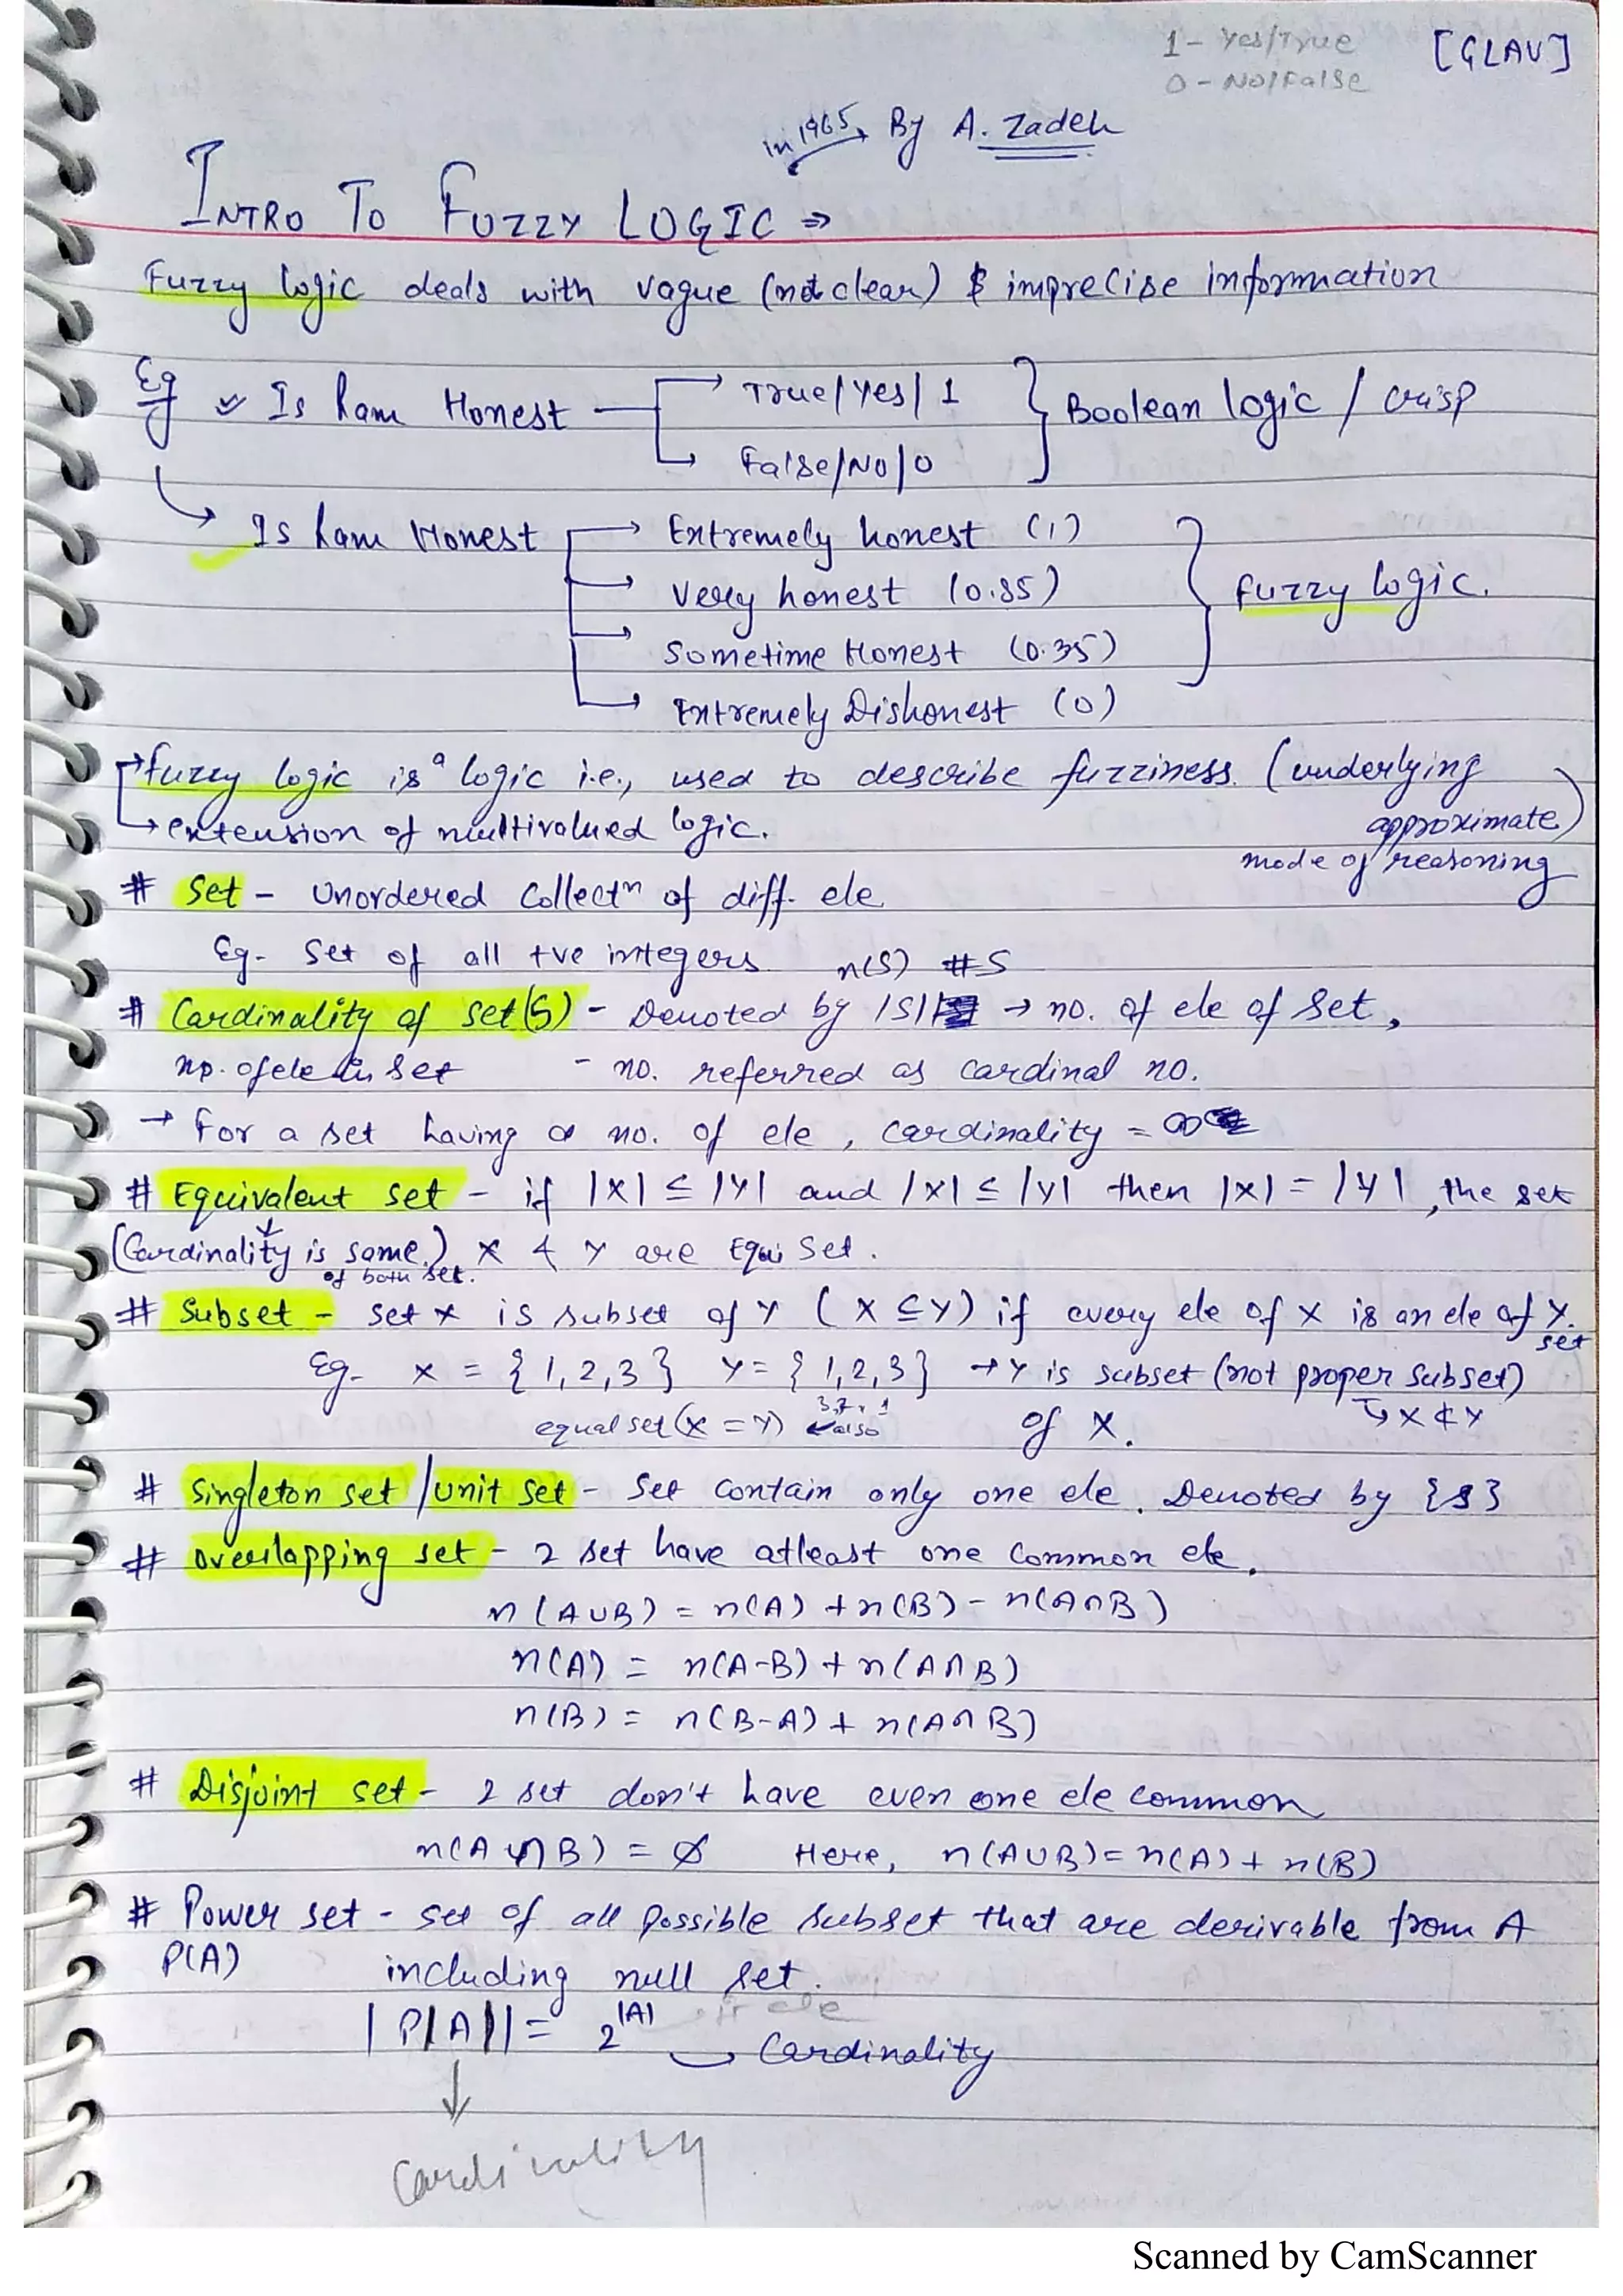 1 - Yes/True
[GLAU]
0 - No/False
in 1965, By A. Zadeh
INTRO TO FUZZY LOGIC ⇒
Fuzzy logic deals with vague (not clear) & imprecise information
Eg Is Ram Honest → True/Yes/1 } Boolean logic / crisp
→ False/No/0
Is Ram Honest → Extremely honest (1) } fuzzy logic.
→ Very honest (0.85)
→ Sometime Honest (0.35)
→ Extremely Dishonest (0)
→ fuzzy logic is a logic i.e., used to describe fuzziness. (underlying approximate) mode of reasoning
→ extension of multivalued logic.
# Set - Unordered Collectn of diff. ele
Eg- Set of all +ve integers n(S) #S
# Cardinality of set(S) - Denoted by |S| → no. of ele of set,
no. of ele in set - no. referred as cardinal no.
→ For a set having ∞ no. of ele, cardinality = ∞
# Equivalent set - if |X| ≤ |Y| and |X| ≤ |Y| then |X| = |Y|, the set
(Cardinality is same) X & Y are Equi Set.
of both set.
# Subset - set X is subset of Y (X ⊆ Y) if every ele of X is an ele of Y.
set
Eg- X = {1,2,3} Y = {1,2,3} → Y is subset (not proper subset)
equal set (X = Y) also of X. ↳ X ⊄ Y
# Singleton set / unit set - Set contain only one ele. Denoted by {s}
# Overlapping set - 2 set have atleast one common ele.
n(A∪B) = n(A) + n(B) - n(A∩B)
n(A) = n(A-B) + n(A∩B)
n(B) = n(B-A) + n(A∩B)
# Disjoint set - 2 set don't have even one ele common
n(A∩B) = ∅ Here, n(A∪B) = n(A) + n(B)
# Power set - set of all possible subset that are derivable from A
P(A) including null set.
|P(A)| = 2^|A| → Cardinality
↓
Cardinality
Scanned by CamScanner